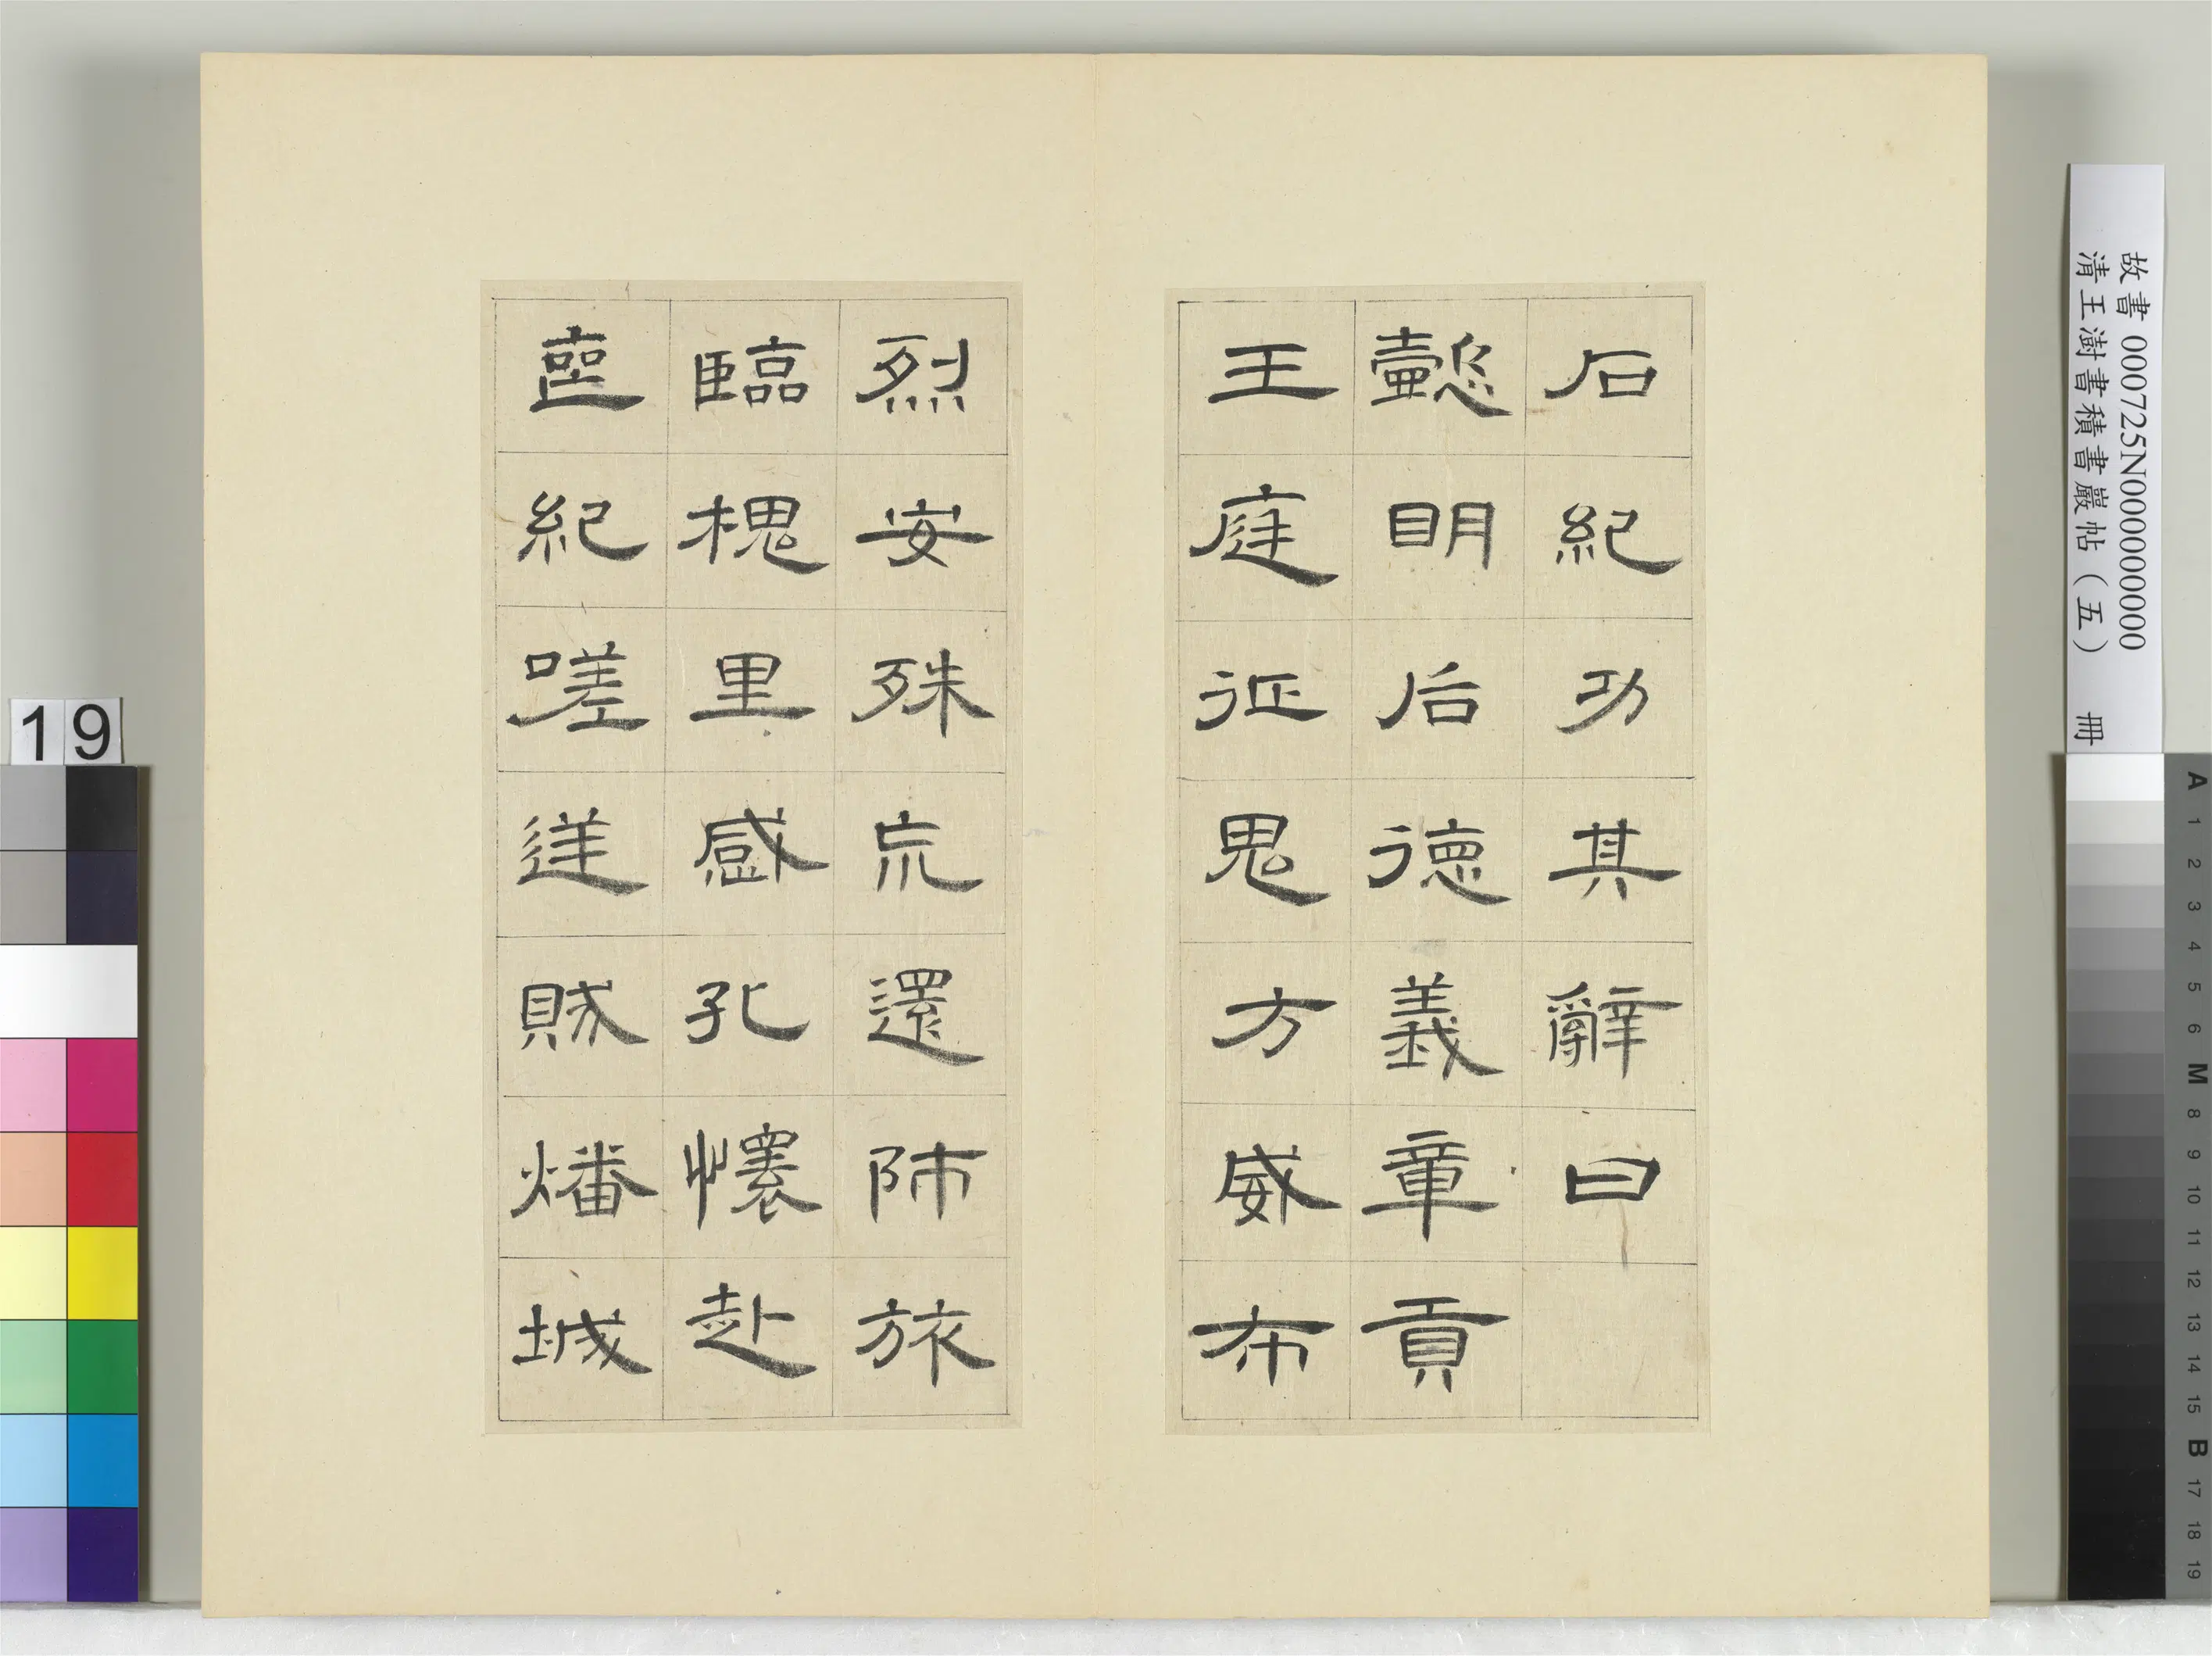 故書 000725N000000000
清王澍書積書巖帖（五） 冊
石紀功其辭曰
懿眀后德義章貢
王庭征鬼方威布
烈安殊巟還師旅
臨槐里感孔懷赴
喪紀嗟逆賊燔城
19
A 1 2 3 4 5 6 M 8 9 10 11 12 13 14 15 B 17 18 19